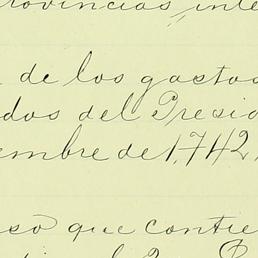 rovincias, inte
de los gastos
dos del Presid
embre de 1,742,
so que contie